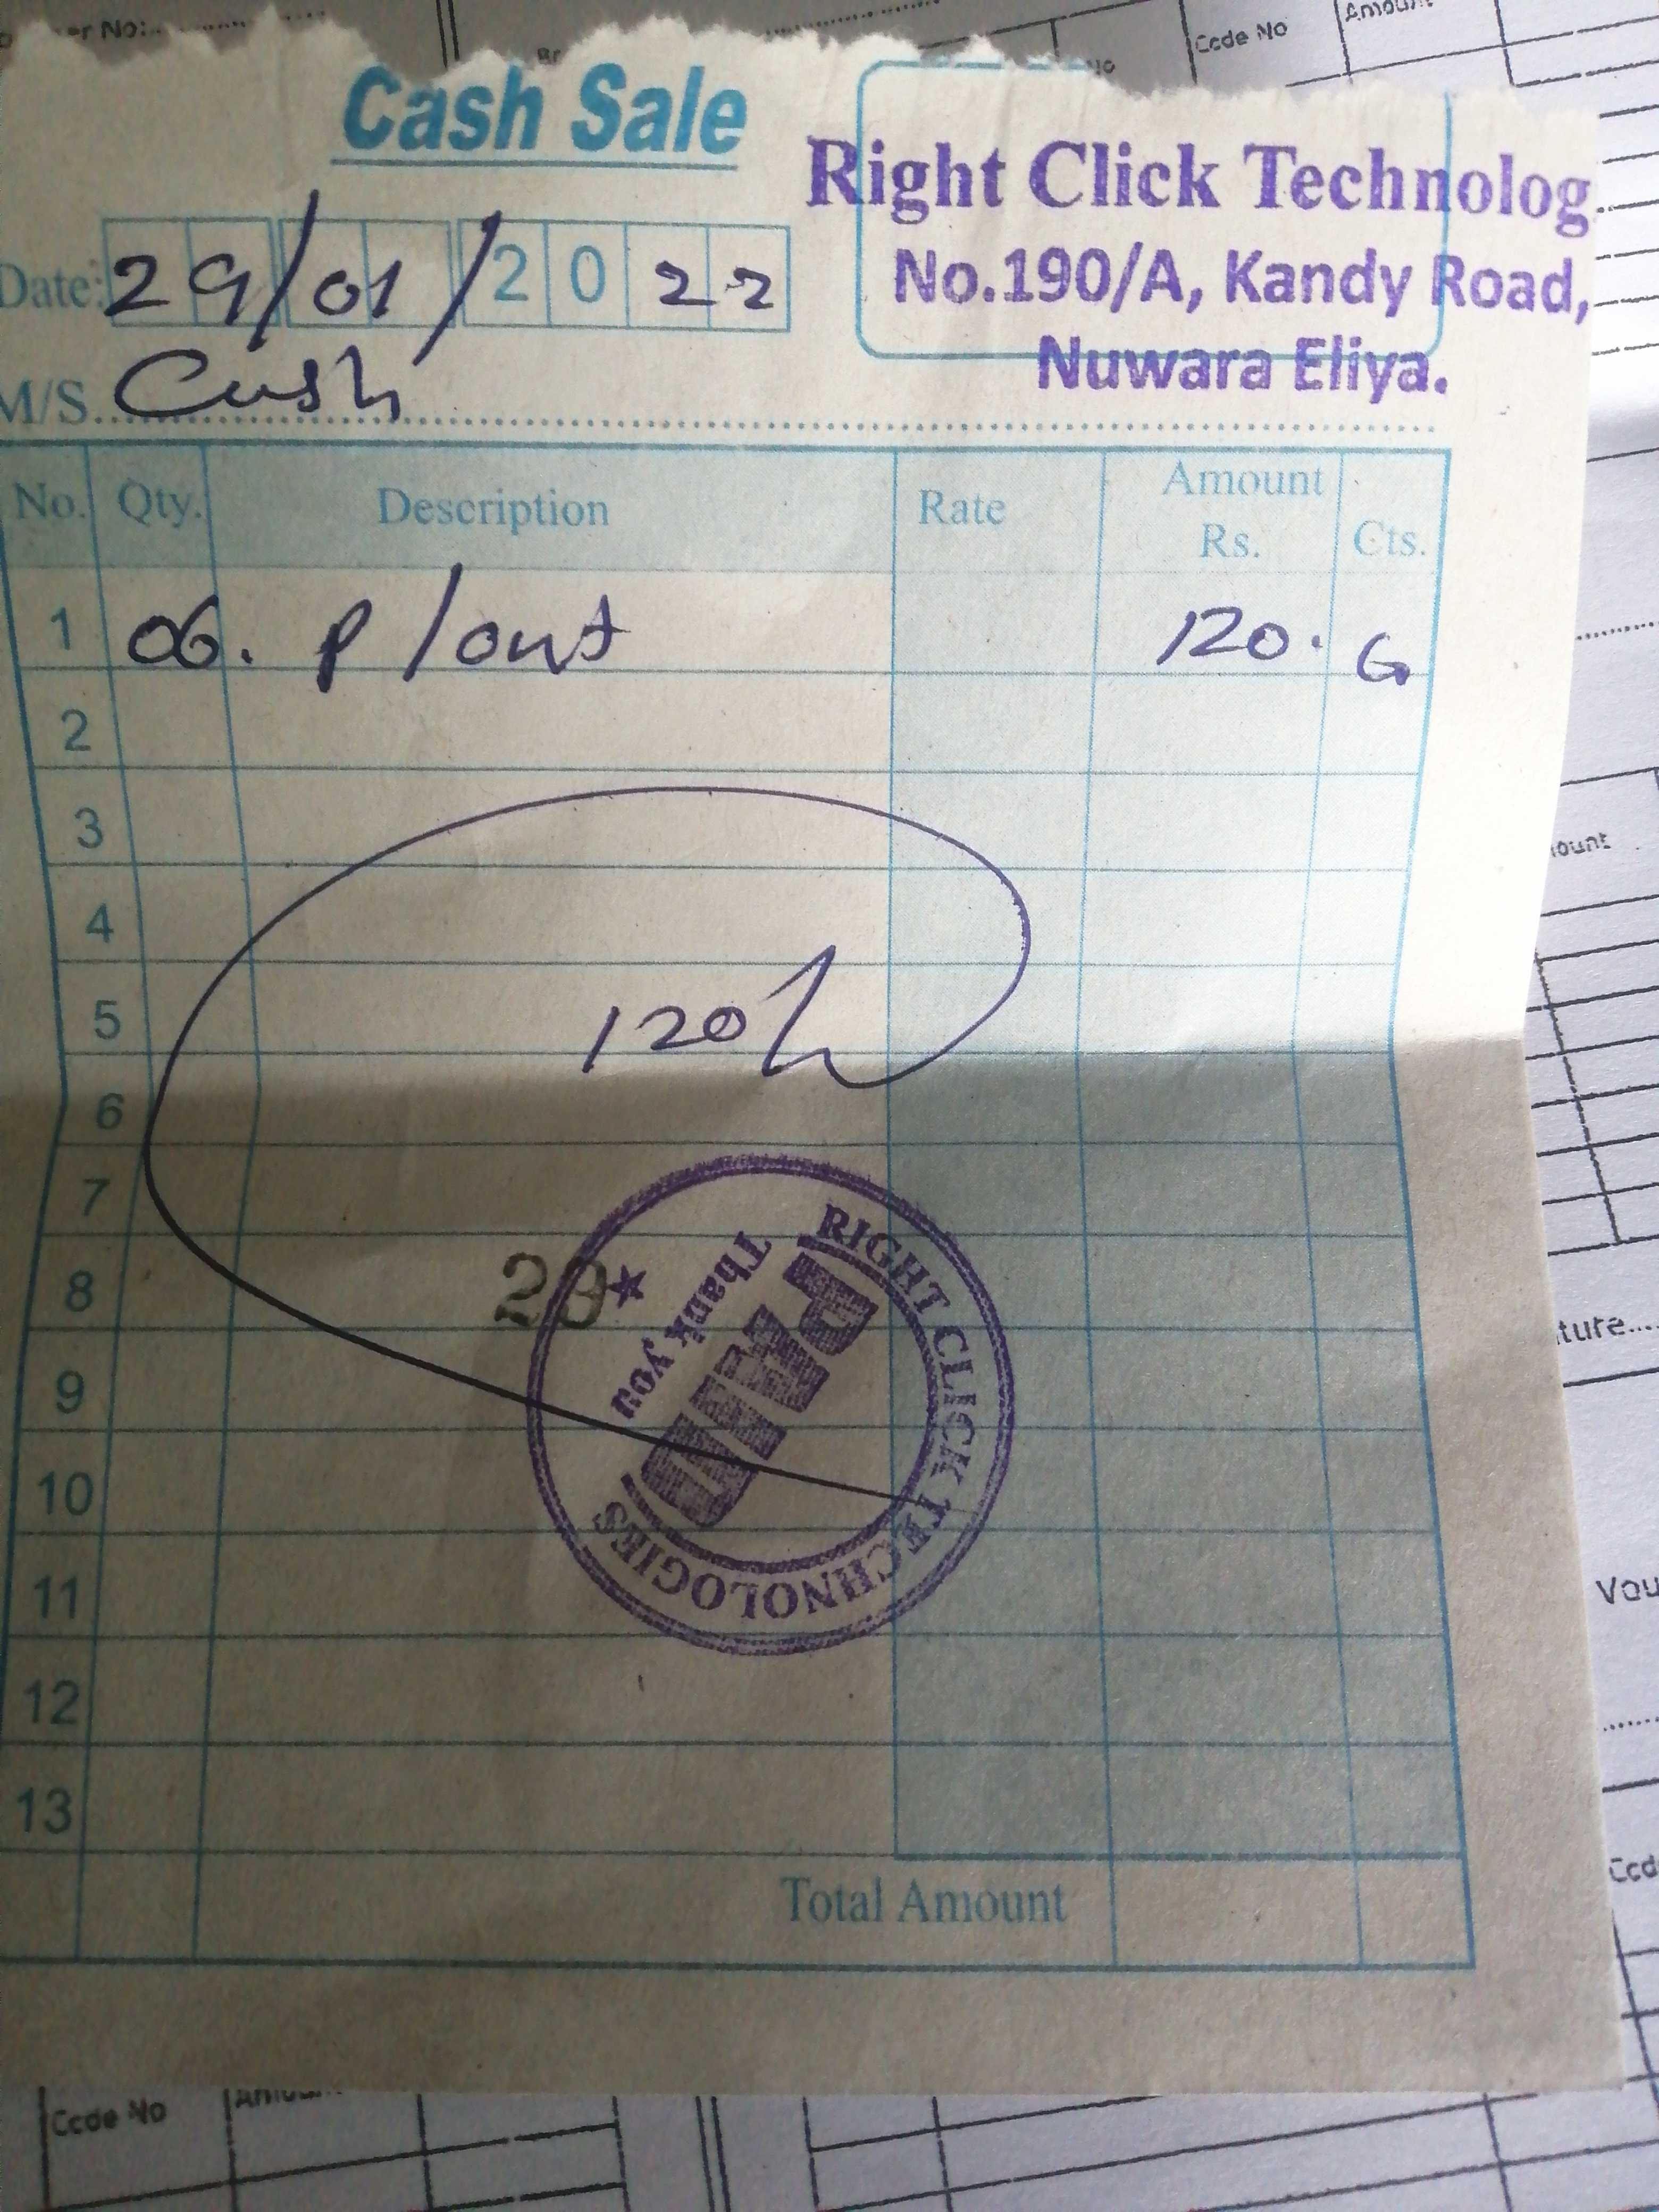 er No:
Br
No
Code No
Amount
Cash Sale
Right Click Technolog
No.190/A, Kandy Road,
Nuwara Eliya.
Date: 29/01/2022
M/S. Cash
No. Qty. Description Rate Amount Rs. Cts.
1 06. P/out 120.
2
3
4
5 120/
6
7
8 29
9
10
11
12
13
RIGHT CLICK TECHNOLOGIES
PAID
Thank you
Total Amount
ount
ture
Vou
Cod
Code No
Amoun